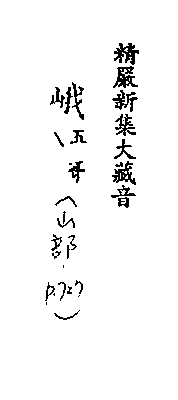 精嚴新集大藏音
峨五哥(山部.